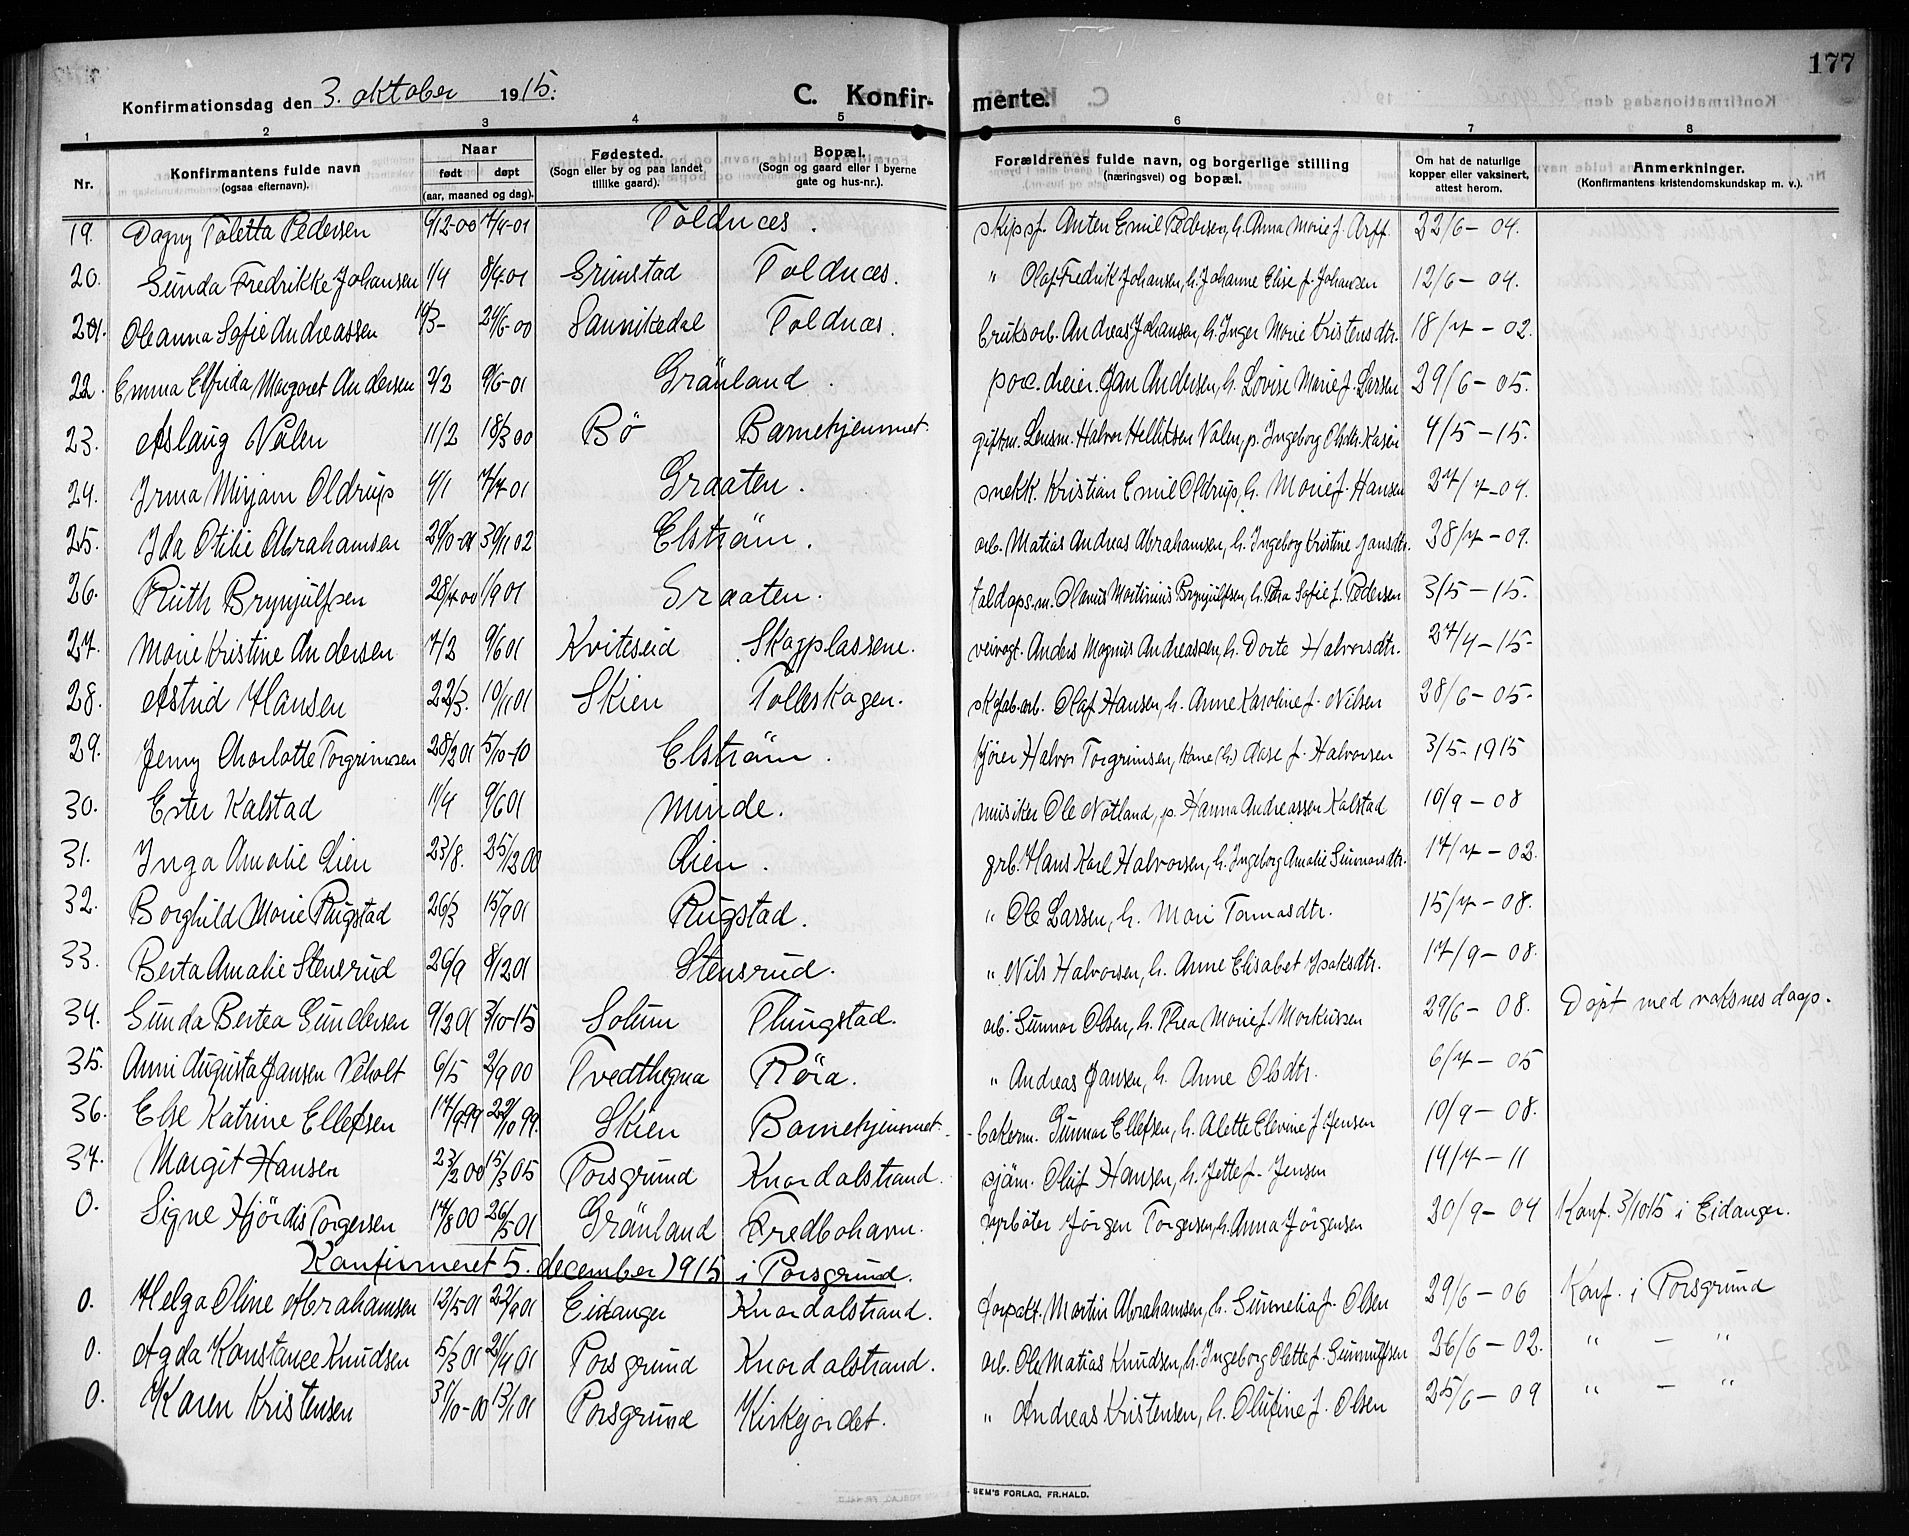 177
Konfirmationsdag den 3. oktober 1915. C. Konfirmerte.
1 2 3 4 5 6 7 8
Nr. Konfirmantens fulde navn (ogsaa efternavn). Naar født døpt (aar, maaned og dag). Fødested. (Sogn eller by og paa landet tillike gaard). Bopæl. (Sogn og gaard eller i byerne gate og hus-nr.). Forældrenes fulde navn, og borgerlige stilling (næringsvei) og bopæl. Om hat de naturlige kopper eller vaksinert, attest herom. Anmerkninger. (Konfirmantens kristendomskundskap m. v.).
19. Dagny Toletta Pedersen 6/12-00 7/4-01 Toldnces. skipsf. Anten Emil Pedersen, h. Anna Marie f. Arff. 22/6-04.
20. Gunda Fredrikke Johansen 1/4 8/4-01 Grimstad Toldnces. " Olaf Fredrik Johansen, h. Johanne Elise f. Johansen 12/6-04.
21. Oleanna Sofie Andreassen 24/6-00 Sannikedal Toldnces. bruksarb. Andreas Johansen, h. Inger Marie Kristensdtr. 18/7-02.
22. Emma Elfrida Margaret Andersen 2/2 9/6-01 Grönland. porc. dreier. Jan Andersen, h. Lovise Marie f. Larsen 29/6-05.
23. Aslaug Valen 11/2 18/3 00 Bø Barnehjemmet. giftm. Lensm. Halvor Helliksen Valen, p. Ingeborg Olsdtr. Kasin 4/5-15.
24. Irma Mirjam Oldrup 4/1 7/7 01 Graaten. snekk. Kristian Emil Oldrup, h. Marie f. Hansen 27/7-04.
25. Ida Otilie Abrahamsen 29/10-01 30/11 02 Elström. arb. Matias Andreas Abrahamsen, h. Ingeborg Kristine Jansdtr. 28/7-09.
26. Ruth Brynjulfsen 28/7 00 1/9 01 Graaten. toldops.m. Olanus Martinius Brynjulfsen, h. Petra Sofie f. Pedersen 3/5-15.
27. Marie Kristine Andersen 7/2 9/6 01 Kviteseid Skogplassene. veivogt. Anders Magnus Andreassen, h. Dorte Halvorsdtr. 27/4-15.
28. Astrid Hansen 22/3. 10/11 01 Skien Tolleskogen. skofab.arb. Olaf Hansen, h. Anne Karoline f. Nilsen 28/6-05.
29. Jenny Charlotte Torgrimsen 28/2 01 5/10-10 Elström. kjörer Halvor Torgrimsen, kone (h.) Aase f. Halvorsen 3/5-1915
30. Ester Kalstad 11/4 9/6 01 Minde. musiker Ole Nötland, p. Hanna Andreassen Kalstad 10/9-08
31. Inga Amalie Lien 23/8. 25/12 00 Lien. grb. Hans Karl Halvorsen, h. Ingeborg Amalie Gunnarsdtr. 17/7-02.
32. Borghild Marie Rugstad 26/3 15/9 01 Rugstad. " Ole Larsen, h. Mari Tomasdtr. 15/7-08.
33. Berta Amalie Stensrud 26/9 8/12 01 Stensrud. " Nils Halvorsen, h. Anne Elisabet Isaksdtr. 17/9-08.
34. Gunda Bertea Gundersen 9/12 01 3/10-15 Solum Flugstad. arb. Gunnar Olsen, h. Thea Marie f. Markussen 29/6-08. Döpt med voksnes daap.
35. Anni Augusta Jansen Veholt 6/5 2/9 00 Tvedthegna Röra. " Andreas Jansen, h. Anne Olsdtr. 6/7-05
36. Else Katrine Ellefsen 17/9 99 22/10 99. Skien Barnehjemmet. bakerm. Gunnar Ellefsen, h. Alette Elevine f. Jensen 10/9-08.
37. Margit Hansen 23/2 00 15/3 05 Porsgrund Knardalstrand. sjöm. Oluf Hansen, h. Jette f. Jensen 14/7-11
0. Signe Hjördis Torgersen 14/8 00 26/5 01 Grönland Fredbohavn. Jörgen Torgersen, h. Anna Jörgensen 30/9-04 Konf. 3/10 15 i Eidanger.
Konfirmeret 5. december 1915 i Porsgrund.
0. Helga Oline Abrahamsen 12/5-01 22/9 01 Eidanger Knardalstrand. Martin Abrahamsen, h. Gunnelia f. Olsen 29/6-06 Konf. i Porsgrund
0. Agda Konstance Knudsen 5/3 01 21/4 01 Porsgrund Knardalstrand. arb. Ole Matias Knudsen, h. Ingeborg Olette f. Gunnulfsen 26/6-02. " - "
0. Karen Kristensen 31/10-00 13/1 01 Porsgrund Kirkejordet. " Andreas Kristensen, h. Olufine f. Olsen 25/6-09 " - "
SEM'S FORLAG, FR.HALD.